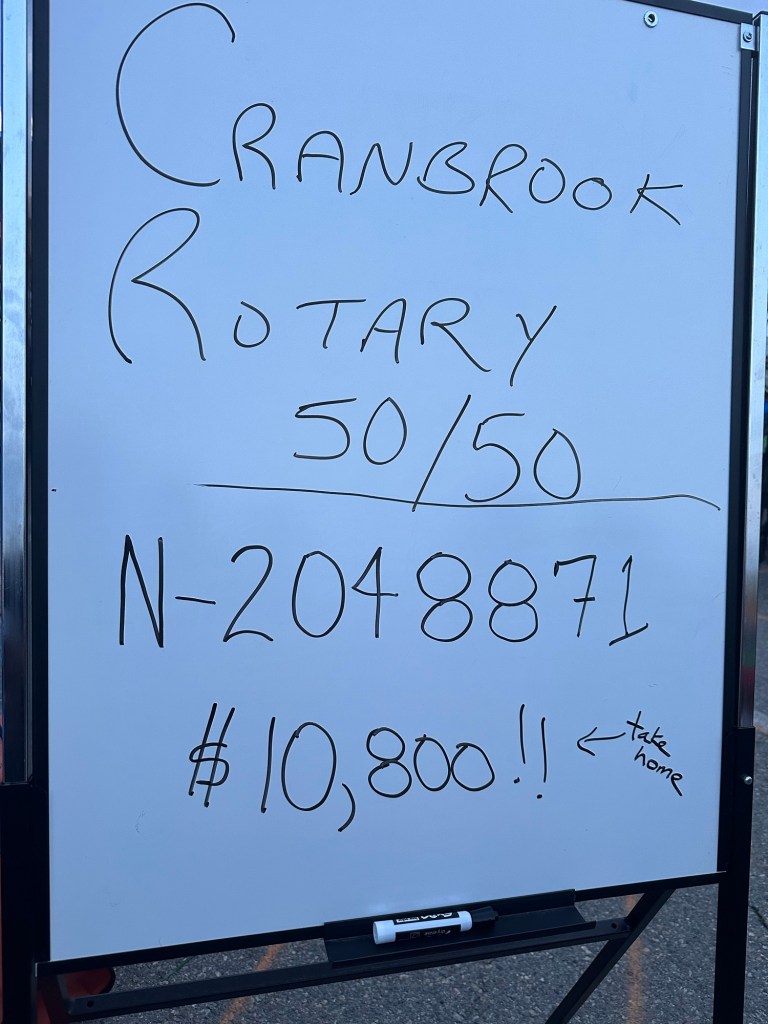 CRANBROOK
ROTARY
50/50
N-2048871
$10,800!! ← take
home